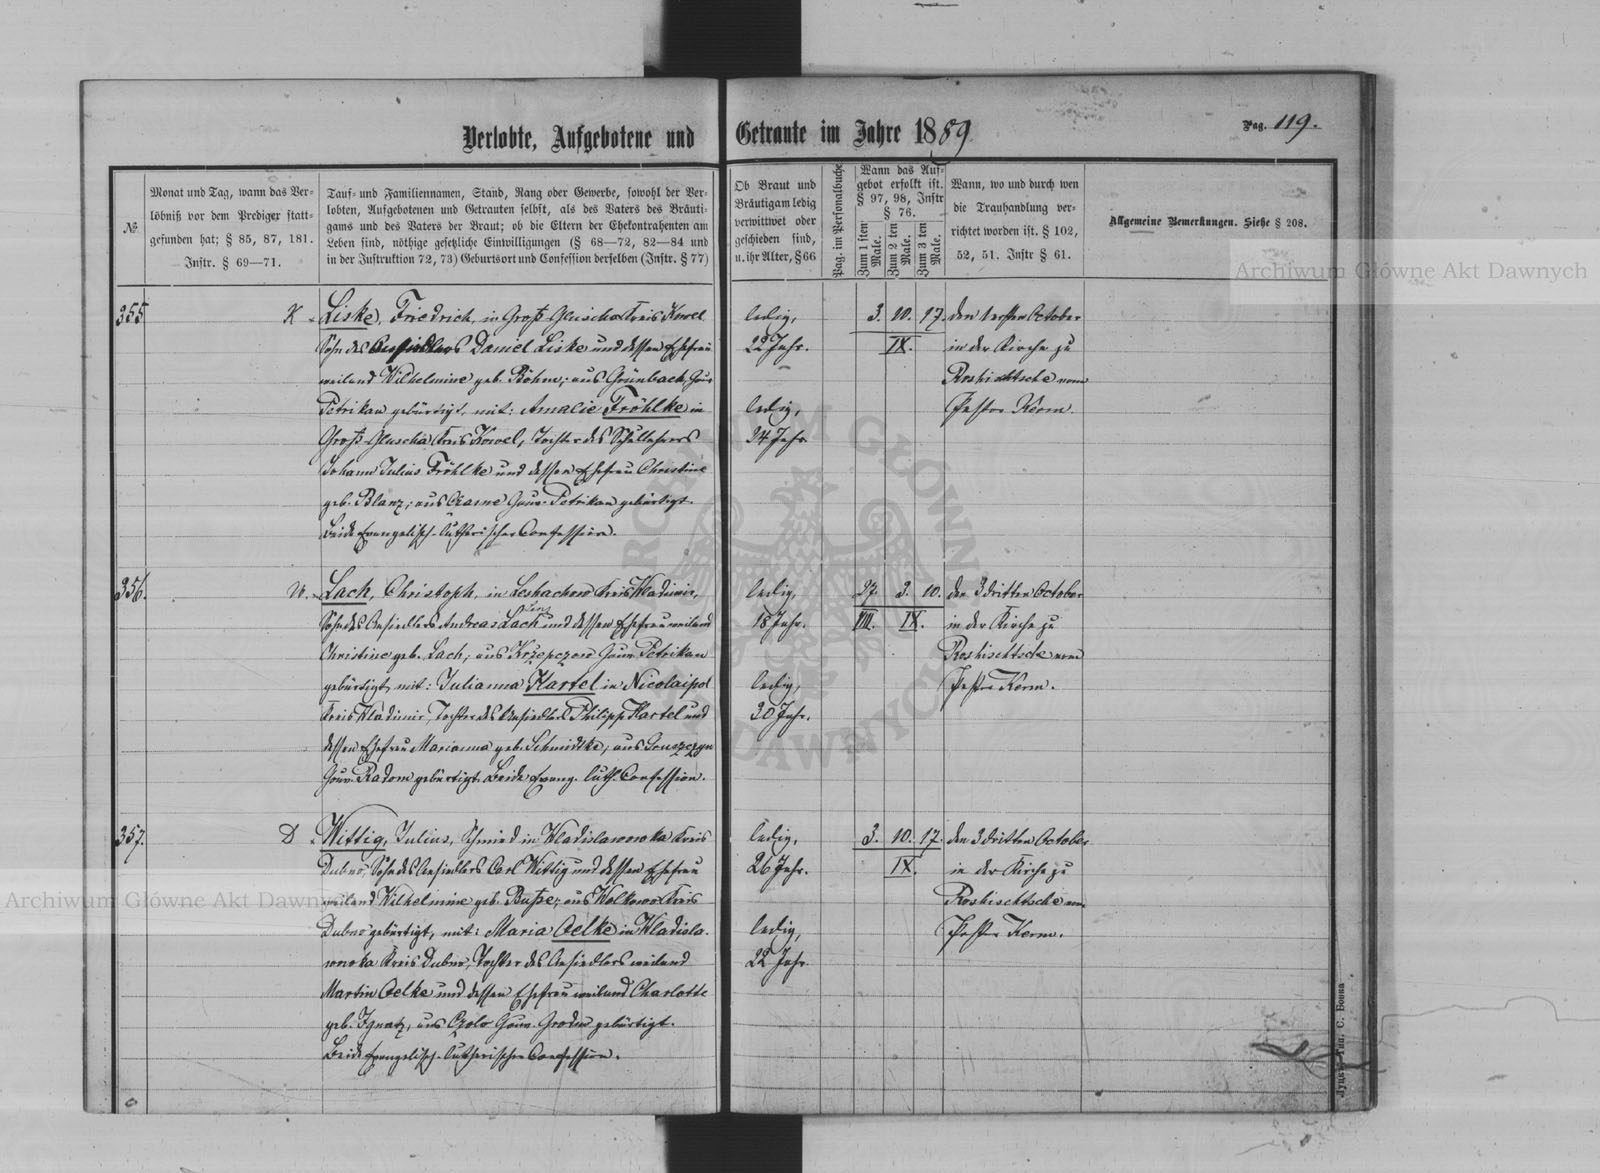 Verlobte, Aufgebotene und Getraute im Jahre 1889
Pag. 119.
№
Monat und Tag, wann das Ver-
löbniß vor dem Prediger statt-
gefunden hat; § 85, 87, 181.
Instr. § 69—71.
Tauf- und Familiennamen, Stand, Rang oder Gewerbe, sowohl der Ver-
lobten, Aufgebotenen und Getrauten selbst, als des Vaters des Bräuti-
gams und des Vaters der Braut; ob die Eltern der Ehekontrahenten am
Leben sind, nöthige gesetzliche Einwilligungen (§ 68—72, 82—84 und
in der Justruktion 72, 73) Geburtsort und Confession derselben (Instr. § 77)
Ob Braut und
Bräutigam ledig
verwittwet oder
geschieden sind,
u. ihr Alter, § 66
Pag. im Personalbuche.
Wann das Auf-
gebot erfolkt ist.
§ 97, 98, Instr
§ 76.
Zum 1 sten Male.
Zum 2 ten Male.
Zum 3 ten Male.
Wann, wo und durch wen
die Trauhandlung ver-
richtet worden ist. § 102,
52, 51. Instr § 61.
Allgemeine Bemerkungen. Siehe § 208.
355
K.
Liske, Friedrich, in Groß-Gluscha Kreis Kowel
Sohn des Ansiedlers Daniel Liske und dessen Ehefrau
weiland Wilhelmine geb. Böhm; aus Grünbach, Gouv
Petrikau gebürtigt, mit: Amalie Fröhlke in
Groß-Gluscha Kreis Kowel, Tochter des Schullehrers
Johann Julius Fröhlke und dessen Ehefrau Christine
geb. Blanz; aus Czarne Gouv. Petrikau gebürtigt.
Beide Evangelisch-Lutherischer Confession.
ledig,
22 Jahr.
ledig,
24 Jahr
3. 10. 17.
IX.
den 1 ersten October
in der Kirche zu
Roshischtsche vom
Pastor Kerm.
356.
W.
Lach, Christoph, in Leshachow Kreis Wladimir,
Sohn des Ansiedlers Andreas Lach und dessen Ehefrau weiland
Christine geb. Lach; aus Krzepczow Gouv. Petrikau
gebürtigt, mit: Julianna Hartel in Nicolaipol
Kreis Wladimir, Tochter des Ansiedlers Philipp Hartel und
dessen Ehefrau Marianna geb. Schmidtke; aus
Gouv. Radom gebürtigt. Beide Evang. Luth. Confession.
ledig,
18 Jahr.
ledig,
30 Jahr.
27. 3. 10.
VIII. IX.
den 3 dritten October
in der Kirche zu
Roshischtsche vom
Pastor Kerm.
357.
D.
Wittig, Julius, Schmied in Wladislawowka Kreis
Dubno, Sohn des Ansiedlers Carl Wittig und dessen Ehefrau
weiland Wilhelmine geb. Buße; aus Wolkowo Kreis
Dubno gebürtigt, mit: Maria Oelke in Wladisla-
wowka Kreis Dubno, Tochter des Ansiedlers weiland
Martin Oelke und dessen Ehefrau weiland Charlotte
geb. Ignatz, aus Czolo Gouv. Grodno gebürtigt.
Beide Evangelisch-Lutherischer Confession.
ledig,
26 Jahr.
ledig,
22 Jahr.
3. 10. 17.
IX.
den 3 dritten October
in der Kirche zu
Roshischtsche vom
Pastor Kerm.
Archiwum Główne Akt Dawnych
Archiwum Główne Akt Dawnych
ARCHIWUM GŁÓWNE AKT DAWNYCH